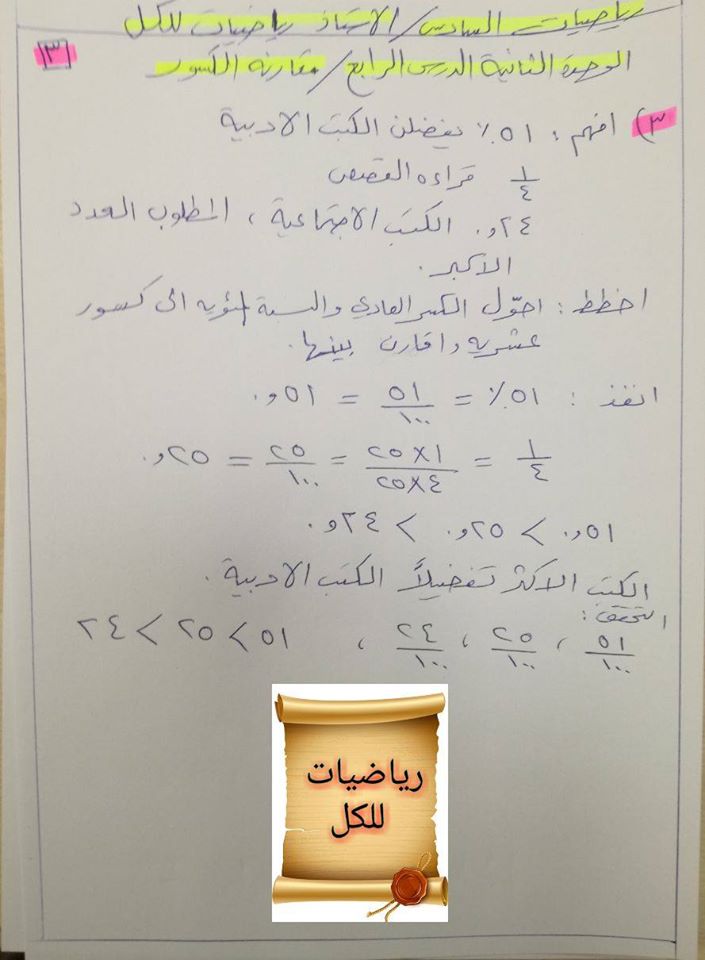 رياضيات السادس / الاستاذ رياضيات للكل
الوحدة الثانية الدرس الرابع / مقارنة الكسور
[٣]
٣) افهم : ٥١٪ يفضلن الكتب الادبية
١/٤ قراءه القصص
٢٤و٠ الكتب الاجتماعية ، المطلوب العدد
الاكبر .
اخطط : احوّل الكسر العادي والنسبة المئويه الى كسور
عشريه واقارن بينها .
انفذ : ٥١٪ = ٥١/١٠٠ = ٥١و٠
١/٤ = ١×٢٥/٤×٢٥ = ٢٥/١٠٠ = ٢٥و٠
٥١و٠ > ٢٥و٠ > ٢٤و٠
الكتب الاكثر تفضيلاً الكتب الادبية .
التحقق :
٥١/١٠٠ ، ٢٥/١٠٠ ، ٢٤/١٠٠ ، ٥١ > ٢٥ > ٢٤
رياضيات
للكل